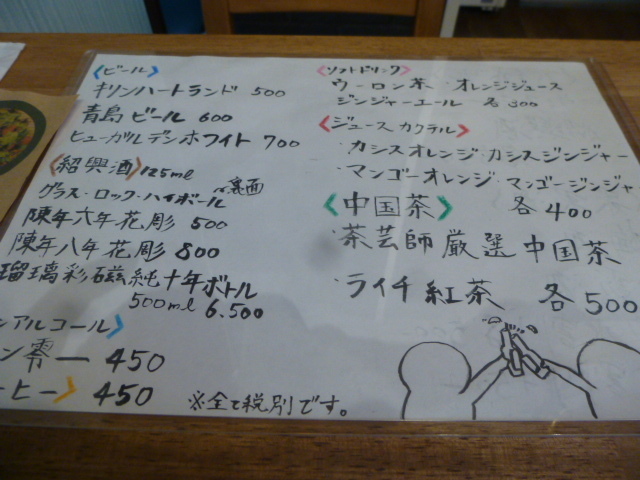 〈ビール〉
キリンハートランド 500
青島ビール 600
ヒューガルデンホワイト 700
〈紹興酒〉125ml
グラス・ロック・ハイボール
裏面
陳年六年花彫 500
陳年八年花彫 800
瑠璃彩磁純十年ボトル
500ml 6.500
ンアルコール〉
ン零ー 450
ーヒー〉 450
※全て税別です。
〈ソフトドリンク〉
ウーロン茶・オレンジジュース
ジンジャーエール 各300
〈ジュースカクテル〉
・カシスオレンジ・カシスジンジャー
・マンゴーオレンジ・マンゴージンジャ
各400
〈中国茶〉
・茶芸師厳選中国茶
・ライチ紅茶 各500